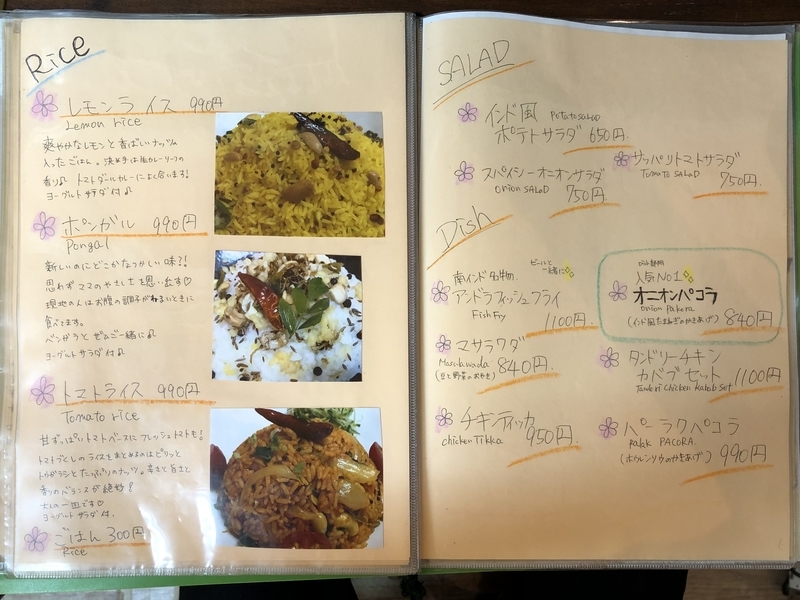 Rice
レモンライス 990円
Lemon rice
爽やかなレモンと香ばしいナッツの
入ったごはん。決め手は缶カレーリーフの
香り♪ トマトダールカレーによく合います!
ヨーグルトサラダ付♪
ポンガル 990円
Pongal
新しいのにどこかなつかしい味?!
思わずママのやさしさを思い出す♡
現地の人はお腹の調子がわるいときに
食べてます。
ベンガラと ぜひご一緒に♪
ヨーグルトサラダ付♪
トマトライス 990円
Tomato rice
甘ずっぱいトマトベースにフレッシュトマトも!
トマトづくしのライスをまとめるのはピリッと
トウガラシとたっぷりのナッツ。辛さと旨さと
香りのバランスが絶妙!
大人の一皿です♡
ヨーグルトサラダ付。
ごはん 300円
Rice
SALAD
インド風 Potato SaLaD
ポテトサラダ 650円
スパイシーオニオンサラダ
Onion SALaD 750円
サッパリトマトサラダ
Tomato SALaD 750円
Dish
南インド名物、 ビールと一緒に
アンドラフィッシュフライ
Fish Fry 1100円
人気No1
オニオンパコラ
onion Pakora
(インド風たまねぎのかきあげ) 840円
マサラワダ
Masalawada 840円
(豆と野菜のおやき)
タンドリーチキン
カバブセット
Tanderi Chicken Kabab Set 1100円
チキンティッカ
chicken Tikka 950円
パーラクパコラ
Palak PACORA
(ホウレンソウのかきあげ) 990円